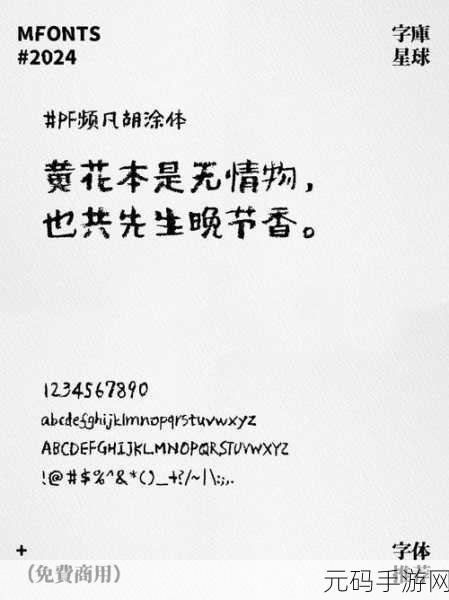 MFONTS
#2024
字庫
星球
#PF频凡胡涂体
黄花本是无情物，
也共先生晚节香。
1234567890
abcdefghijklmnopqrstuvwxyz
ABCDEFGHIJKLMNOPQRSTUVWXYZ
!@#$%^&*()_+?/~|\:;,.
+
（免費商用）
字体
推荐
元码手游网